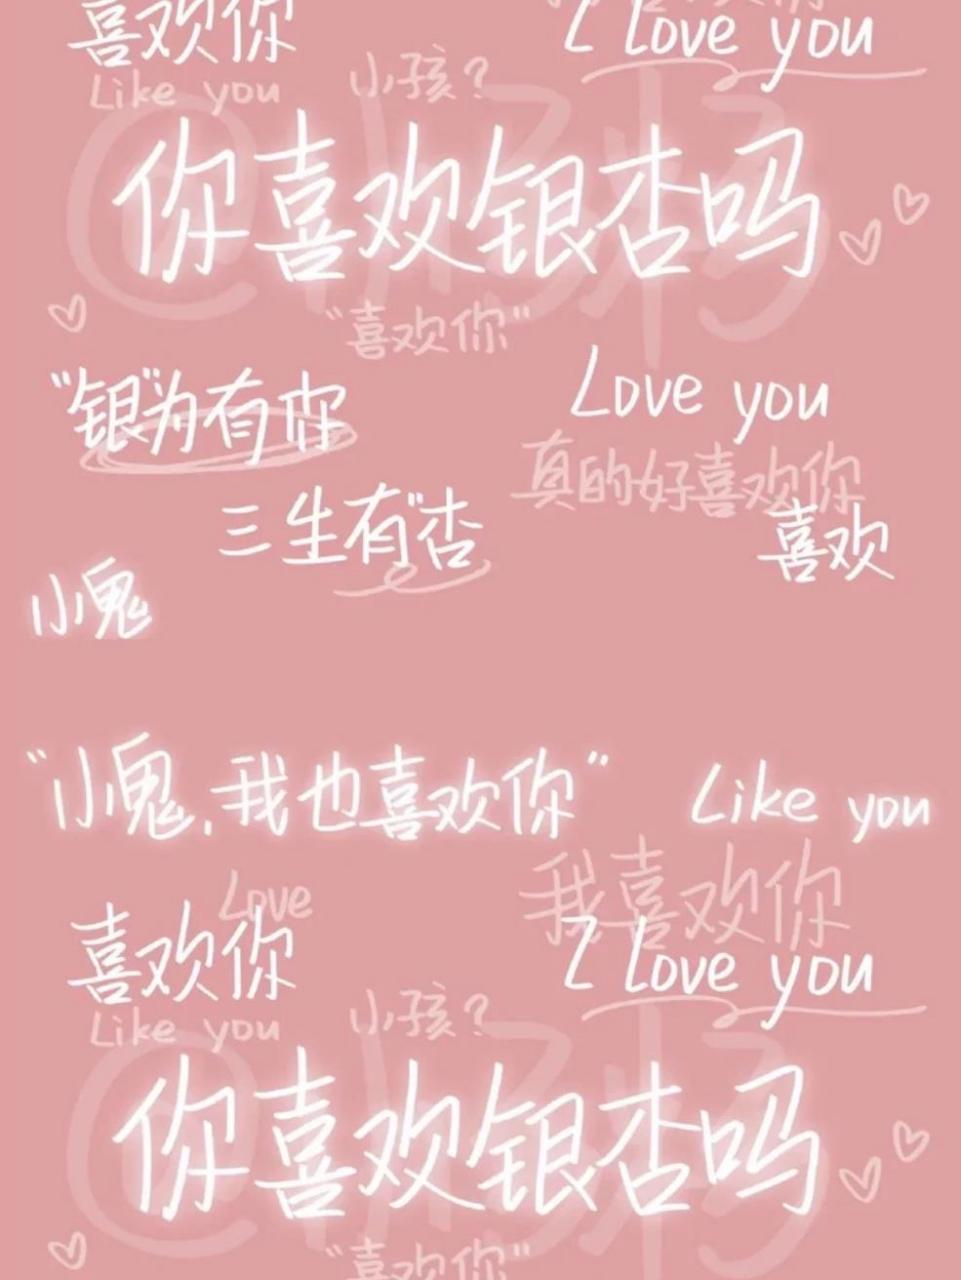 喜欢你
I love you
Like you
小孩?
你喜欢银杏吗
"喜欢你"
"银"为有你
Love you
真的好喜欢你
三生有"杏
喜欢
小鬼
"小鬼,我也喜欢你"
Like you
我喜欢你
Love
喜欢你
I love you
Like you
小孩?
你喜欢银杏吗
"喜欢你"